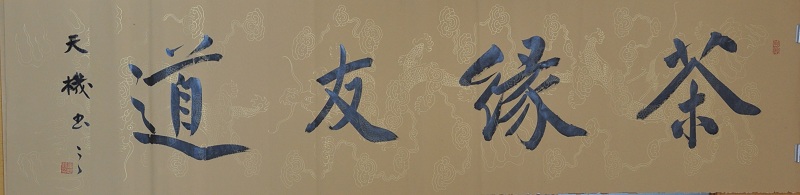 茶缘友道
天機书之